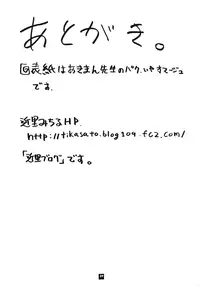 あとがき。
◎表紙はあきまん先生のパク、いやオマージュ
です。
近里みちるHP.
http://tikasato.blog104.fc2.com/
「近里ブログ」です。